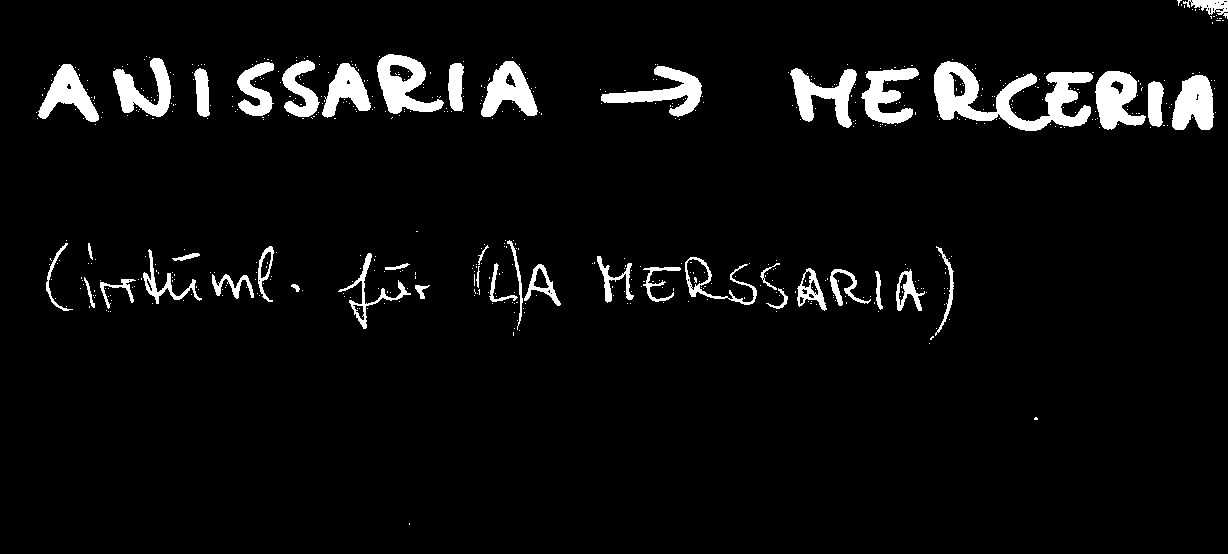 ANISSARIA → MERCERIA
(irrtüml. für (L)A MERSSARIA)